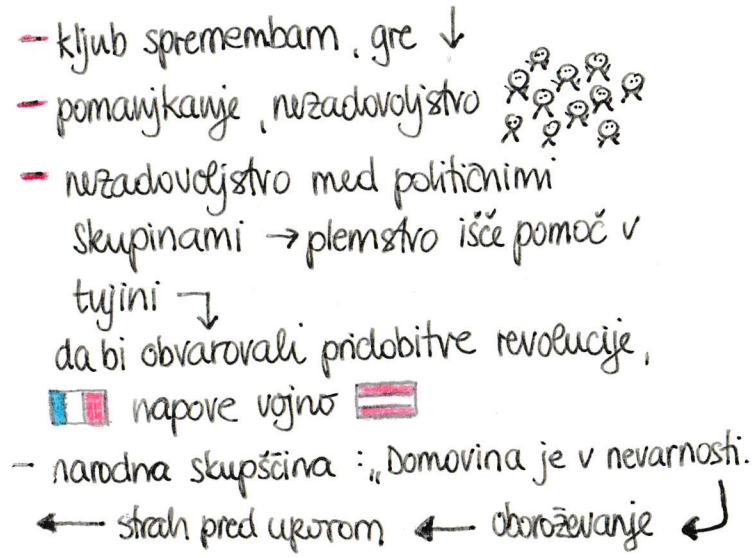 - kljub spremembam, gre ↓
- pomanjkanje, nezadovoljstvo
- nezadovoljstvo med političnimi
skupinami → plemstvo išče pomoč v
tujini
da bi obvarovali pridobitve revolucije,
napove vojno
- narodna skupščina : „Domovina je v nevarnosti.
← strah pred uporom ← oboroževanje